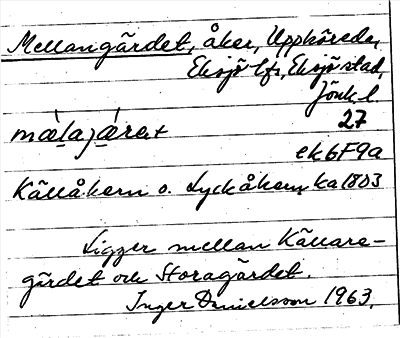 Mellangärdet, åker, Upphöreda,
Eksjö lfs, Eksjö stad,
Jönk l.
27
ek6F9a
Källåkern o. Lyckåkern ka 1803
Ligger mellan Källare-
gärdet och Storagärdet.
Inger Danielsson 1963.